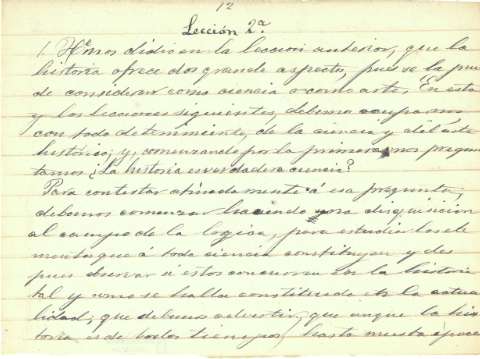 12
Lección 2ª.
1. Hemos dicho en la lección anterior, que la
historia ofrece dos grande aspecto, pues se la pue
de considerar como ciencia o como arte. En esta
y las lecciones siguientes, debemos ocuparnos
con todo detenimiento, de la ciencia y del arte
histórico; y, comenzando por la primera, nos pregun
tamos ¿La historia es verdadera ciencia?
Para contestar atinadamente á esa pregunta,
debemos comenzar haciendo una disquisición
al campo de la logica, para estudiar los ele
mentos que á toda ciencia constituyen y des
pues observar si estos concurren en la historia
tal y como se halla constituida en la actua
lidad, que debemos advertir, que aunque la his
toria es de todos tiempos, hasta nuestra época